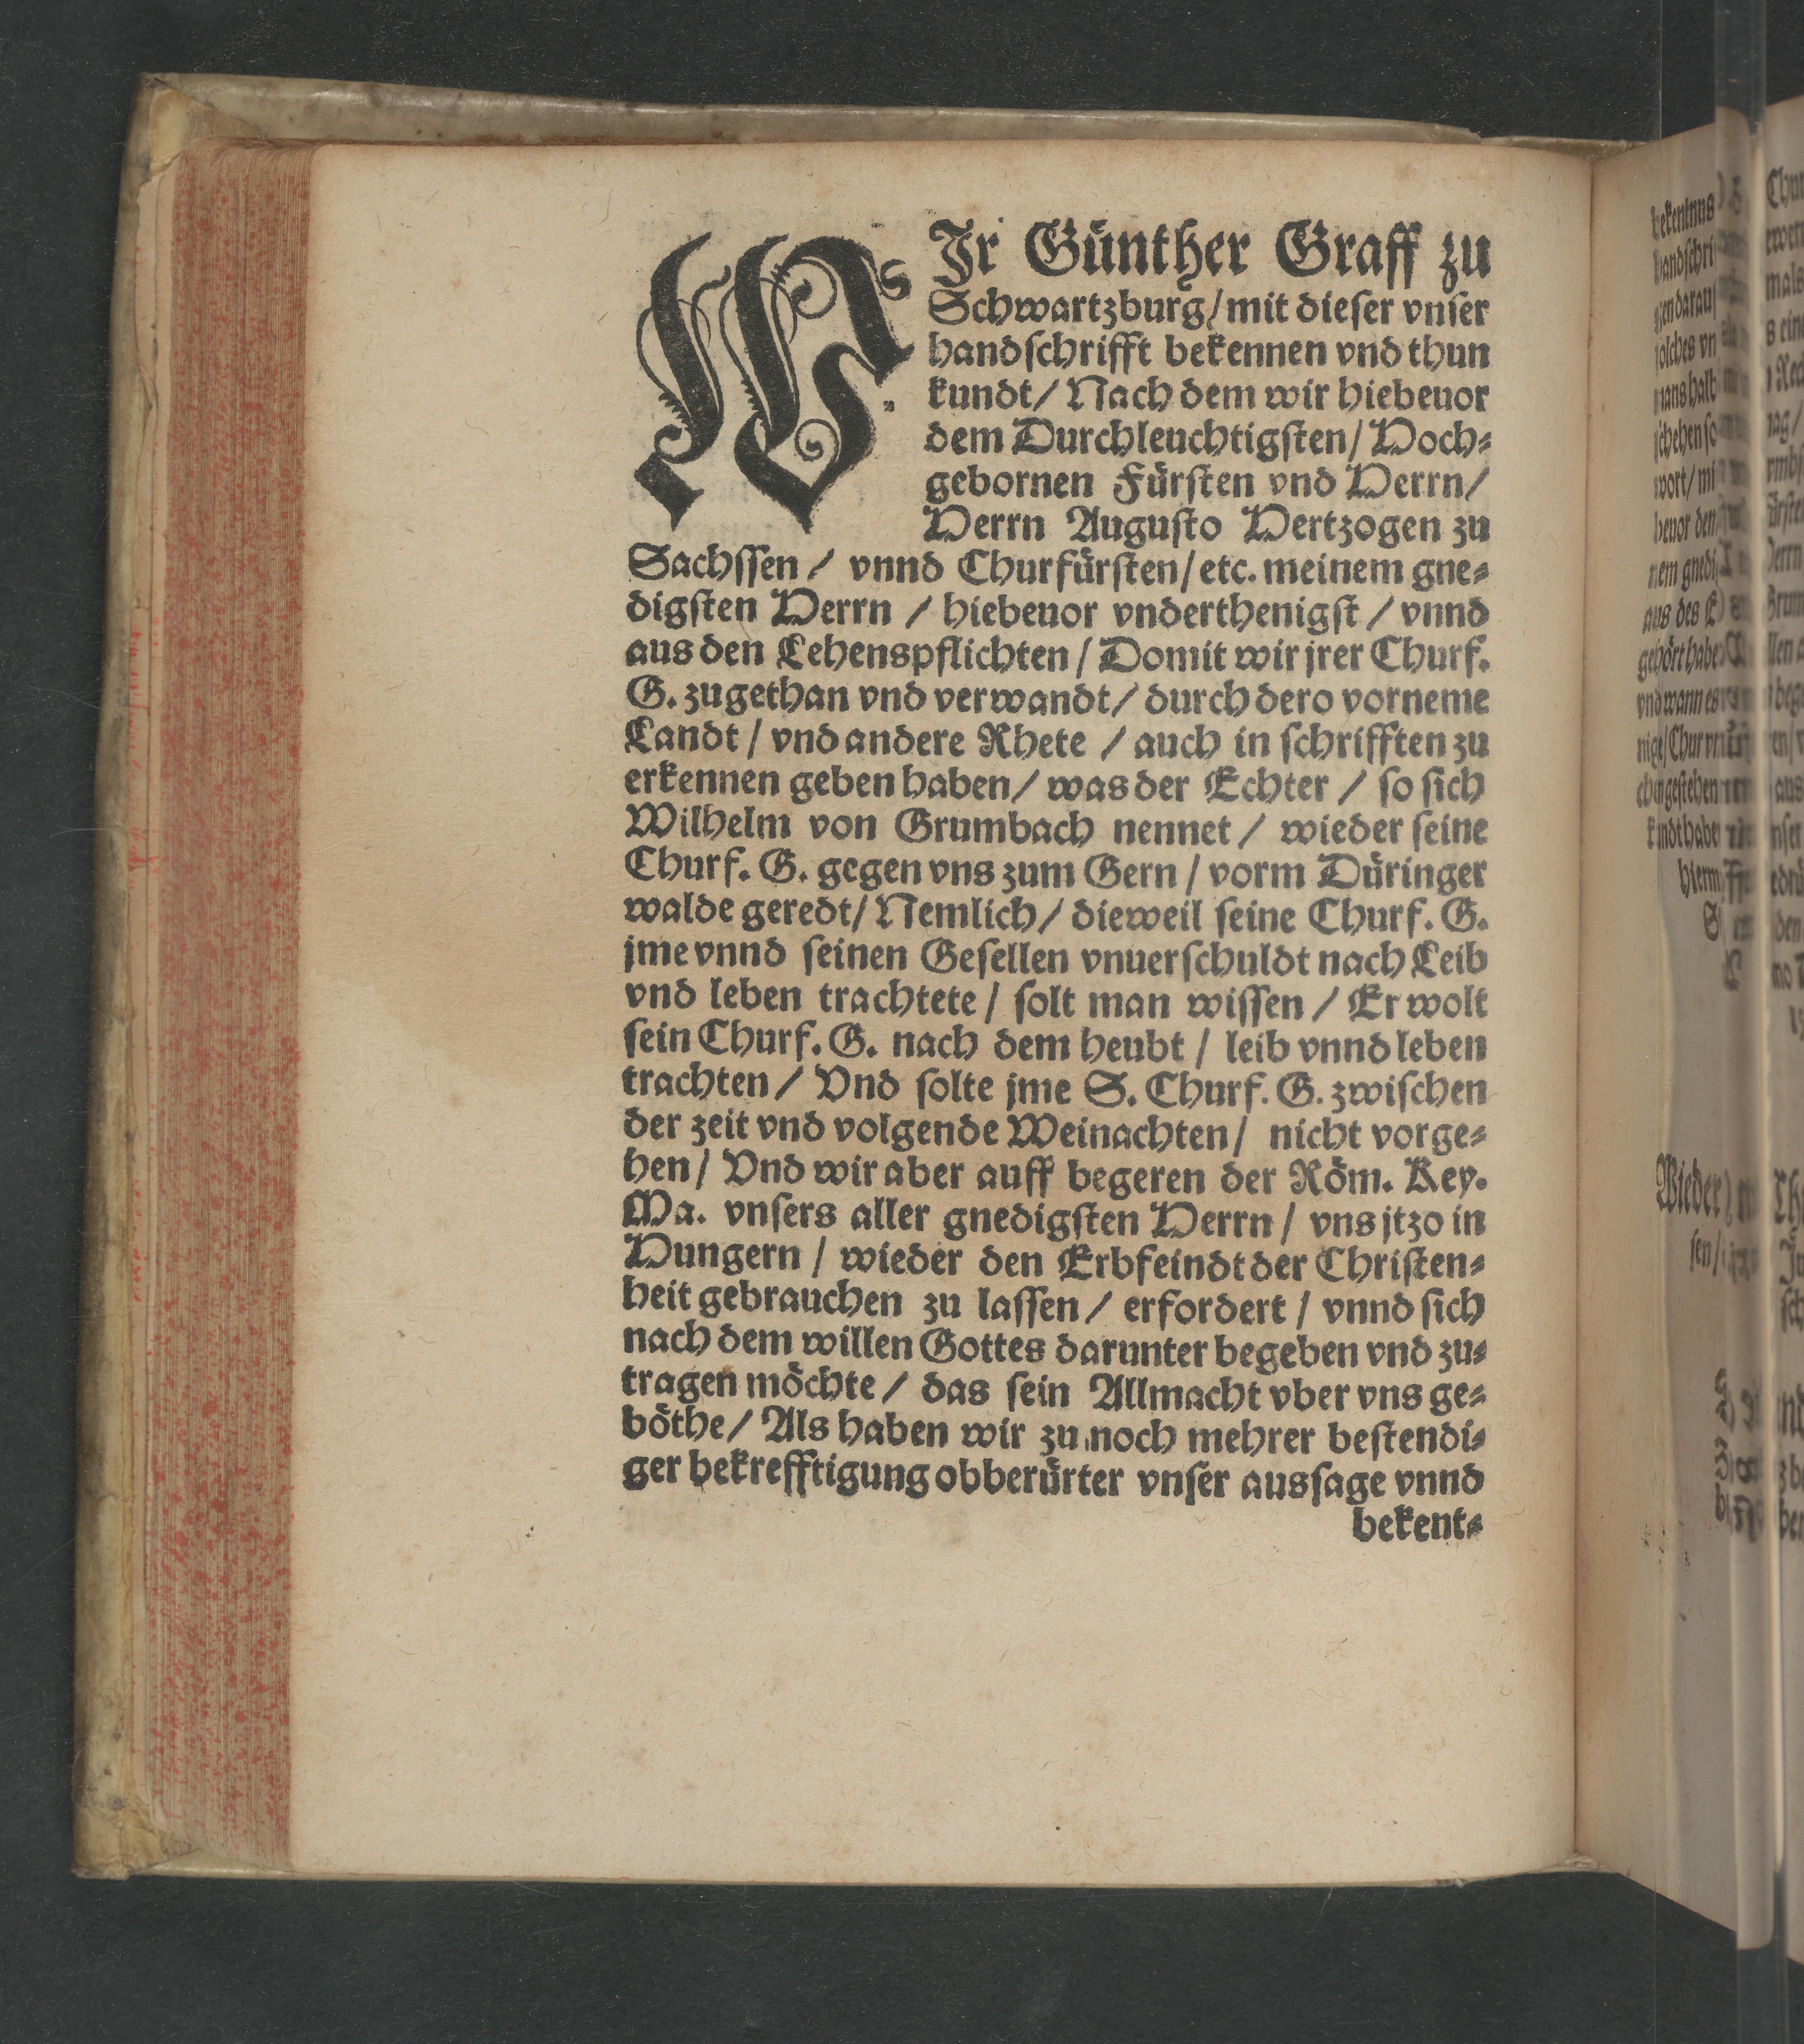 WJr Günther Graff zu
Schwartzburg/ mit dieser vnser
handschrifft bekennen vnd thun
kundt/ Nach dem wir hiebeuor
dem Durchleuchtigsten/ Hoch⸗
gebornen Fürsten vnd Herrn/
Herrn Augusto Hertzogen zu
Sachssen/ vnnd Churfürsten/ etc. meinem gne⸗
digsten Herrn / hiebeuor vnderthenigst / vnnd
aus den Lehenspflichten/ Domit wir jrer Churf.
G. zugethan vnd verwandt/ durch dero vorneme
Landt/ vnd andere Rhete / auch in schrifften zu
erkennen geben haben/ was der Echter / so sich
Wilhelm von Grumbach nennet/ wieder seine
Churf. G. gegen vns zum Gern/ vorm Düringer
walde geredt/ Nemlich/ dieweil seine Churf. G.
jme vnnd seinen Gesellen vnuerschuldt nach Leib
vnd leben trachtete/ solt man wissen/ Er wolt
sein Churf. G. nach dem heubt/ leib vnnd leben
trachten/ Vnd solte jme S. Churf. G. zwischen
der zeit vnd volgende Weinachten/ nicht vorge⸗
hen/ Vnd wir aber auff begeren der Röm. Key.
Ma. vnsers aller gnedigsten Herrn/ vns jtzo in
Hungern/ wieder den Erbfeindt der Christen⸗
heit gebrauchen zu lassen/ erfordert/ vnnd sich
nach dem willen Gottes darunter begeben vnd zu⸗
tragen möchte/ das sein Allmacht vber vns ge⸗
böthe/ Als haben wir zu noch mehrer bestendi⸗
ger bekrefftigung obberürter vnser aussage vnnd
bekent⸗